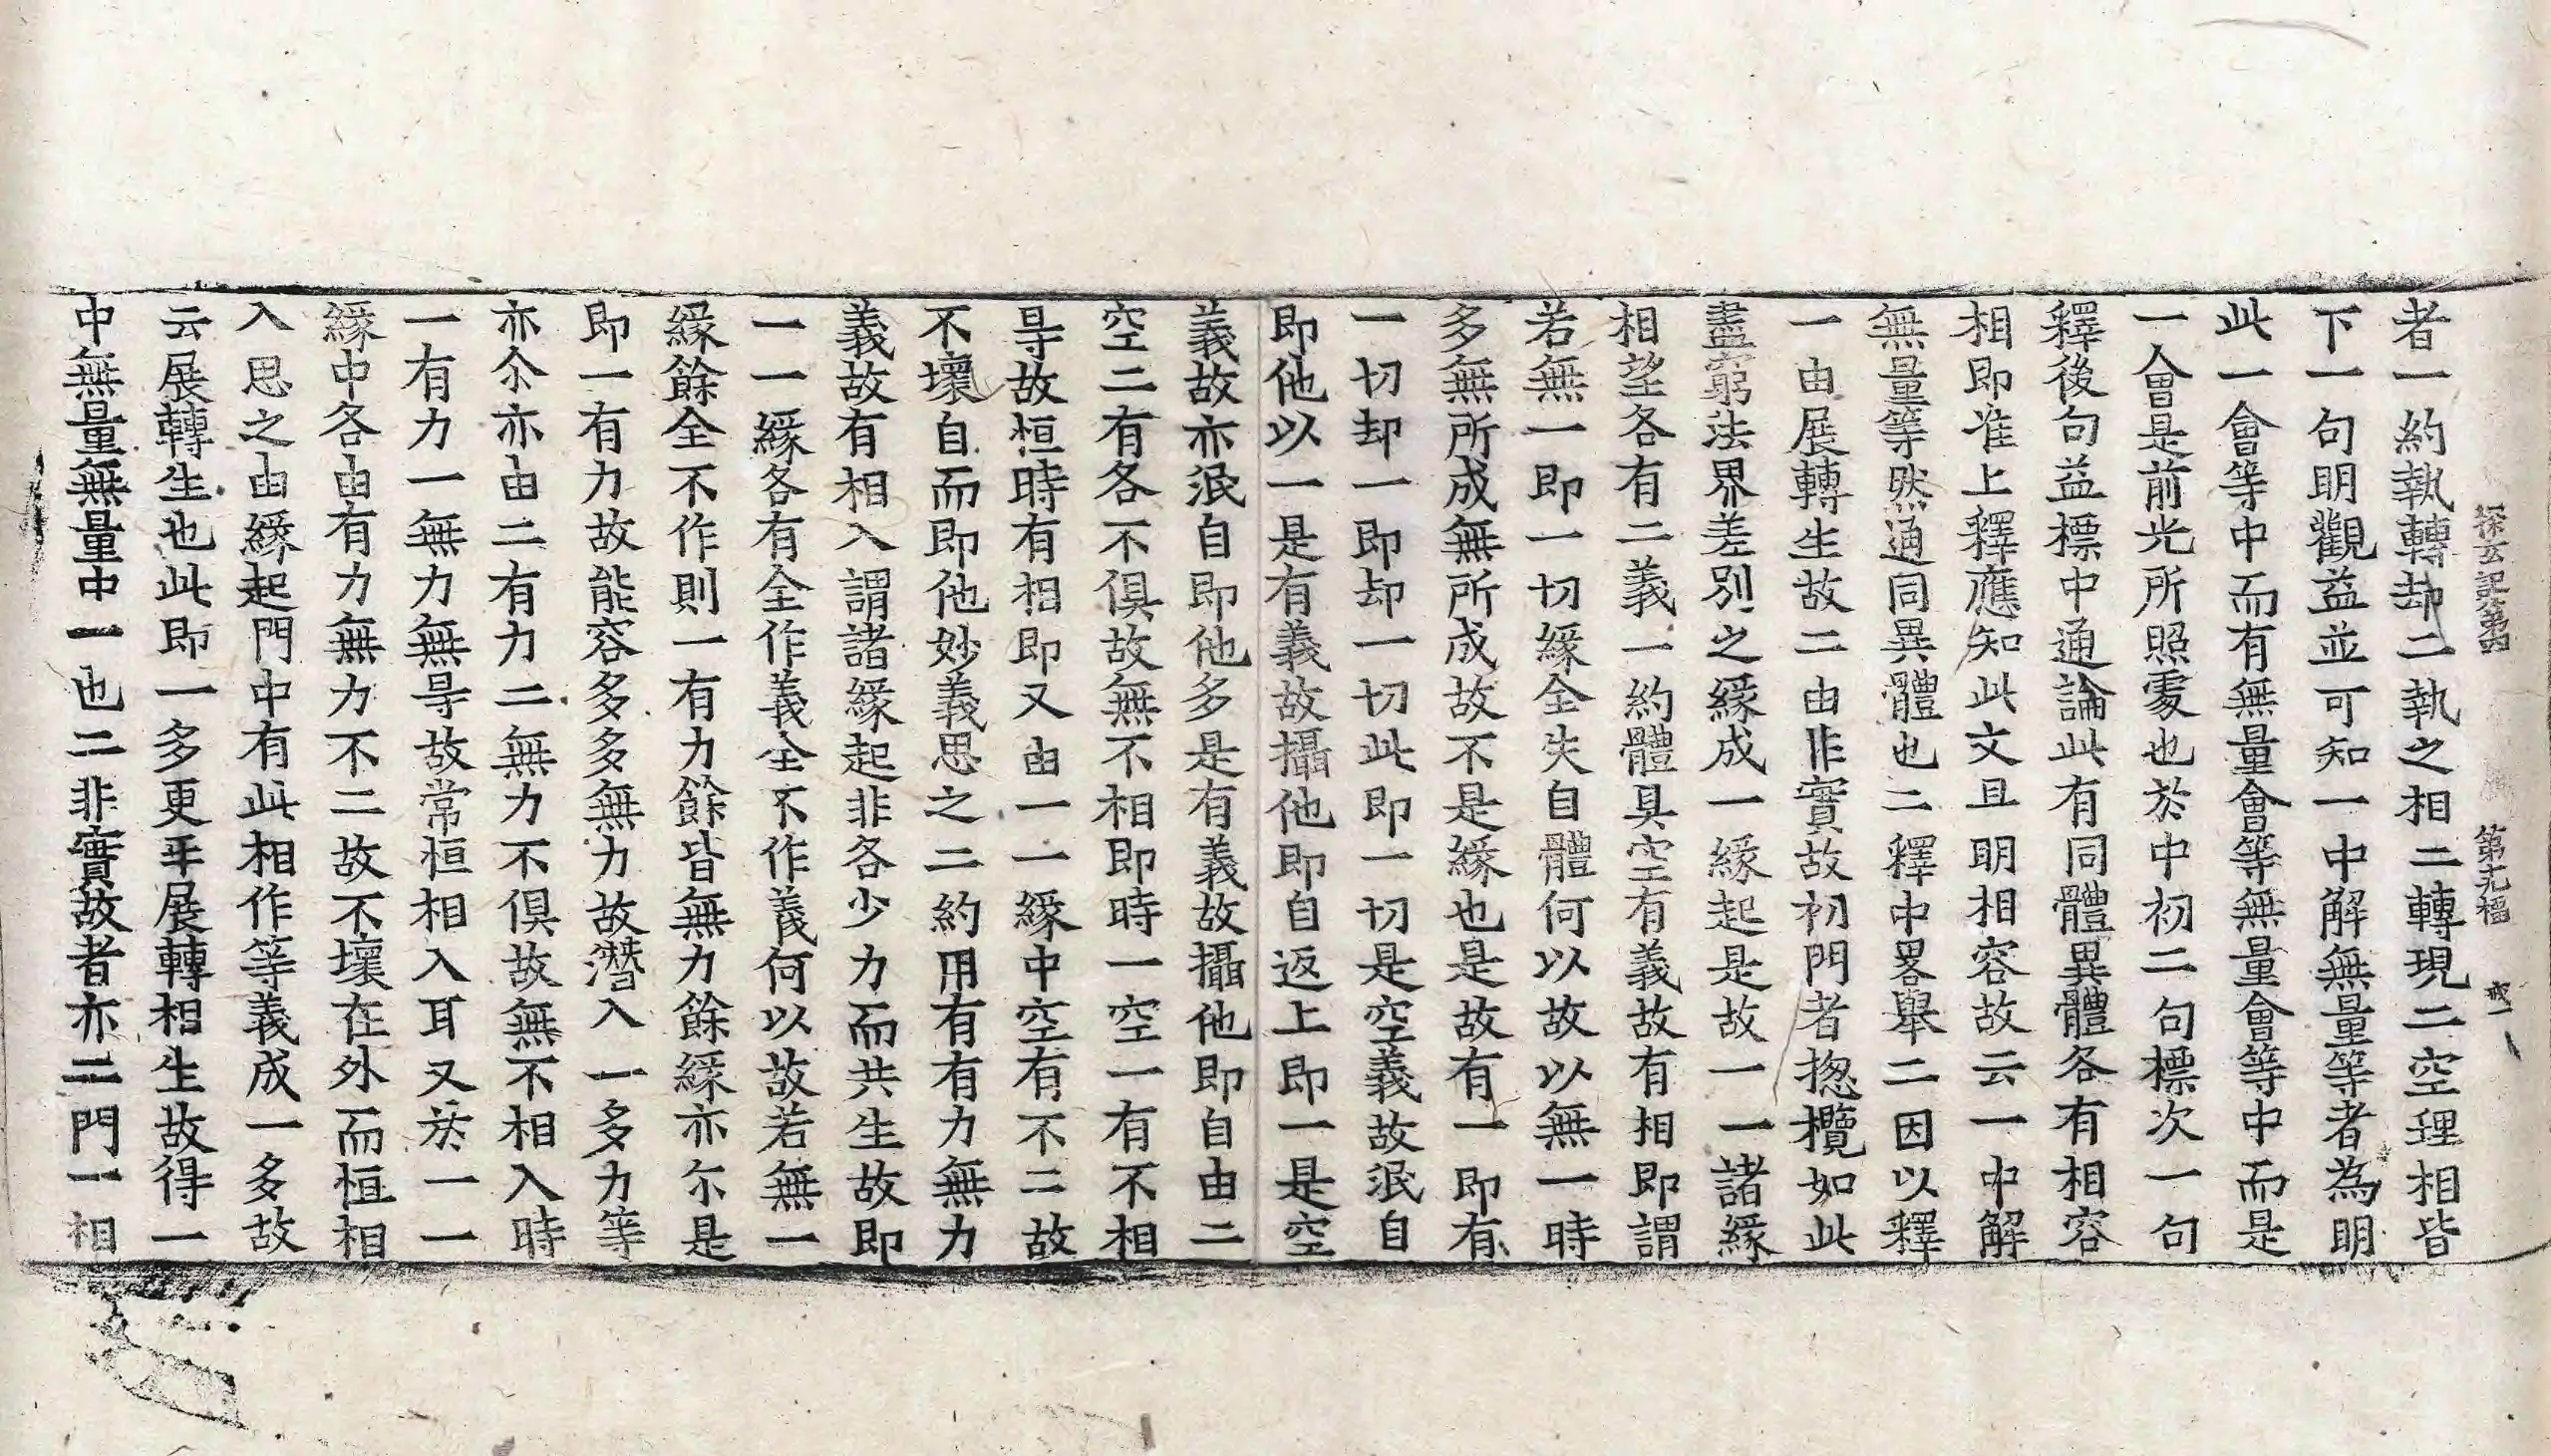 探玄記第四　第九幅　戒一
者一約執轉却二執之相二轉現二空理相皆
下一句明觀益並可知一中解無量等者為明
此一會等中而有無量會等無量會等中而是
一會是前光所照處也於中初二句標次一句
釋後句益標中通論此有同體異體各有相容
相即准上釋應知此文且明相容故云一中解
無量等然通同異體也二釋中畧舉二因以釋
一由展轉生故二由非實故初門者揔攬如此
盡窮法界差別之緣成一緣起是故一一諸緣
相望各有二義一約體具空有義故有相即謂
若無一即一切緣全失自體何以故以無一時
多無所成無所成故不是緣也是故有一即有
一切却一即却一切此即一切是空義故泯自
即他以一是有義故攝他即自返上即一是空
義故亦泯自即他多是有義故攝他即自由二
空二有各不俱故無不相即時一空一有不相
㝵故恒時有相即又由一一緣中空有不二故
不壞自而即他妙義思之二約用有有力無力
義故有相入謂諸緣起非各少力而共生故即
一一緣各有全作義全不作義何以故若無一
緣餘全不作則一有力餘皆無力餘緣亦尔是
即一有力故能容多多無力故潛入一多力等
亦尒亦由二有力二無力不俱故無不相入時
一有力一無力無㝵故常恒相入耳又於一一
緣中各由有力無力不二故不壞在外而恒相
入思之由緣起門中有此相作等義成一多故
云展轉生也此即一多更互展轉相生故得一
中無量無量中一也二非實故者亦二門一相